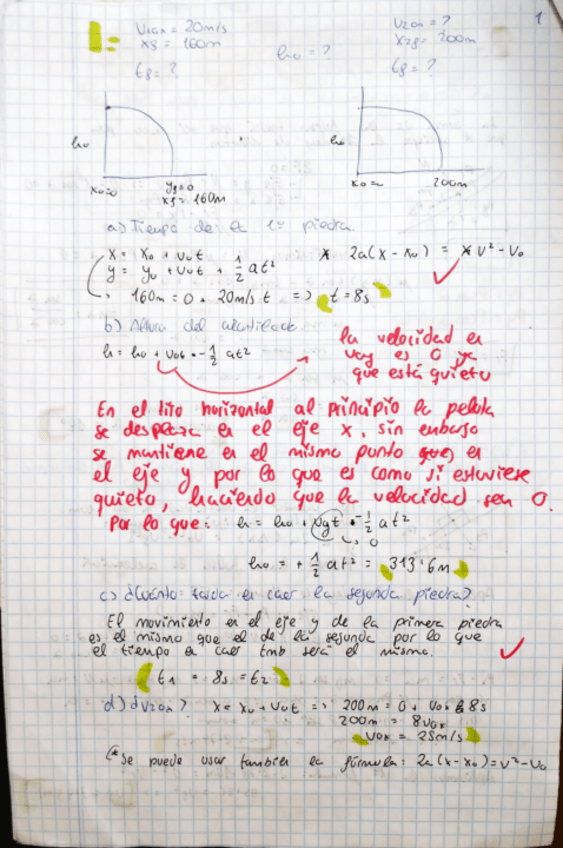 1
1= V10x = 20m/s
xf = 160m
tf = ?
h0 = ?
V20x = ?
x2f = 200m
tf = ?
h0
x0=0
yf=0
xf = 160m
h0
x0=0
200m
a) Tiempo de la 1ª piedra.
x = x0 + v0t
y = y0 + v0t + 1/2 at²
* 2a(x - x0) = v² - v0
160m = 0 + 20m/s t => t = 8s
b) Altura del acantilado
h = h0 + v0t - 1/2 at²
la velocidad en
voy es 0 ya
que está quieto
En el tiro horizontal al principio la pelota
se desplaza en el eje x, sin embargo
se mantiene en el mismo punto en
el eje y por lo que es como si estuviese
quieto, haciendo que la velocidad sea 0.
Por lo que: h = h0 + v0t - 1/2 at²
0
h0 = + 1/2 at² = 313'6m
c) ¿Cuánto tarda en caer la segunda piedra?
El movimiento en el eje y de la primera piedra
es el mismo que el de la segunda por lo que
el tiempo en caer tmb será el mismo.
t1 = 8s = t2
d) ¿V20x? x = x0 + v0t => 200m = 0 + v0x 8s
200m = 8v0x
v0x = 25m/s
(* Se puede usar también la fórmula: 2a(x-x0) = v² - v0